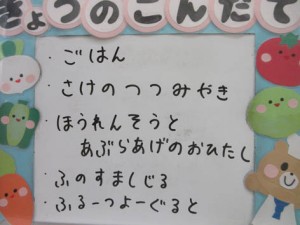 きょうのこんだて
・ごはん
・さけのつつみやき
・ほうれんそうと
あぶらあげのおひたし
・ふのすましじる
・ふるーつよーぐると